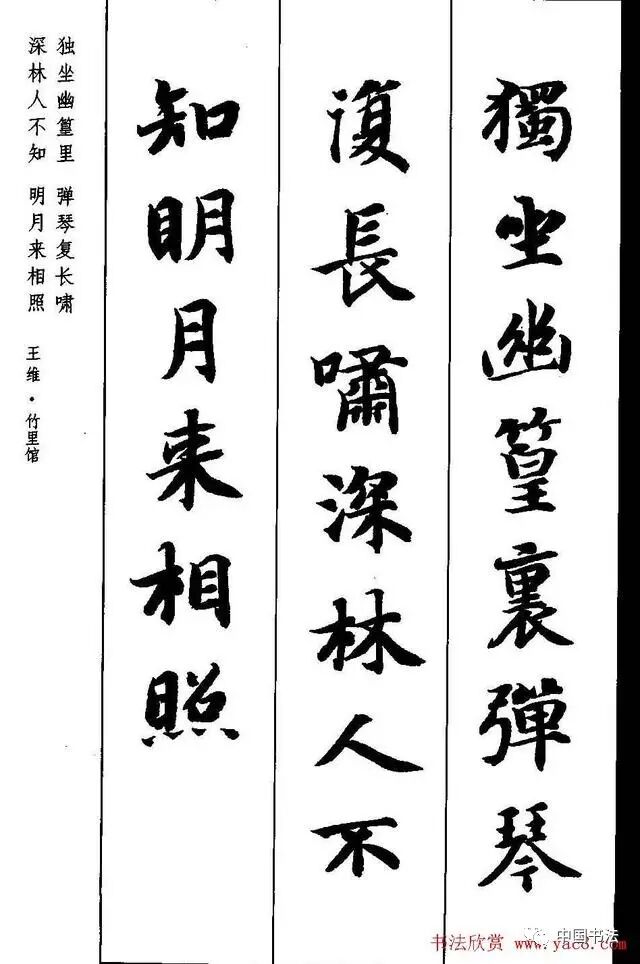 獨坐幽篁裏彈琴
復長嘯深林人不
知明月来相照
独坐幽篁里 弹琴复长啸
深林人不知 明月来相照 王维·竹里馆
中国书法
书法欣赏 www.yac8.com